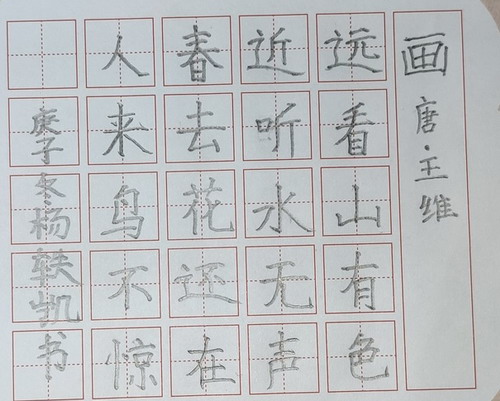 画
唐·王维
远看山有色
近听水无声
春去花还在
人来鸟不惊
庚子冬杨轶凯书